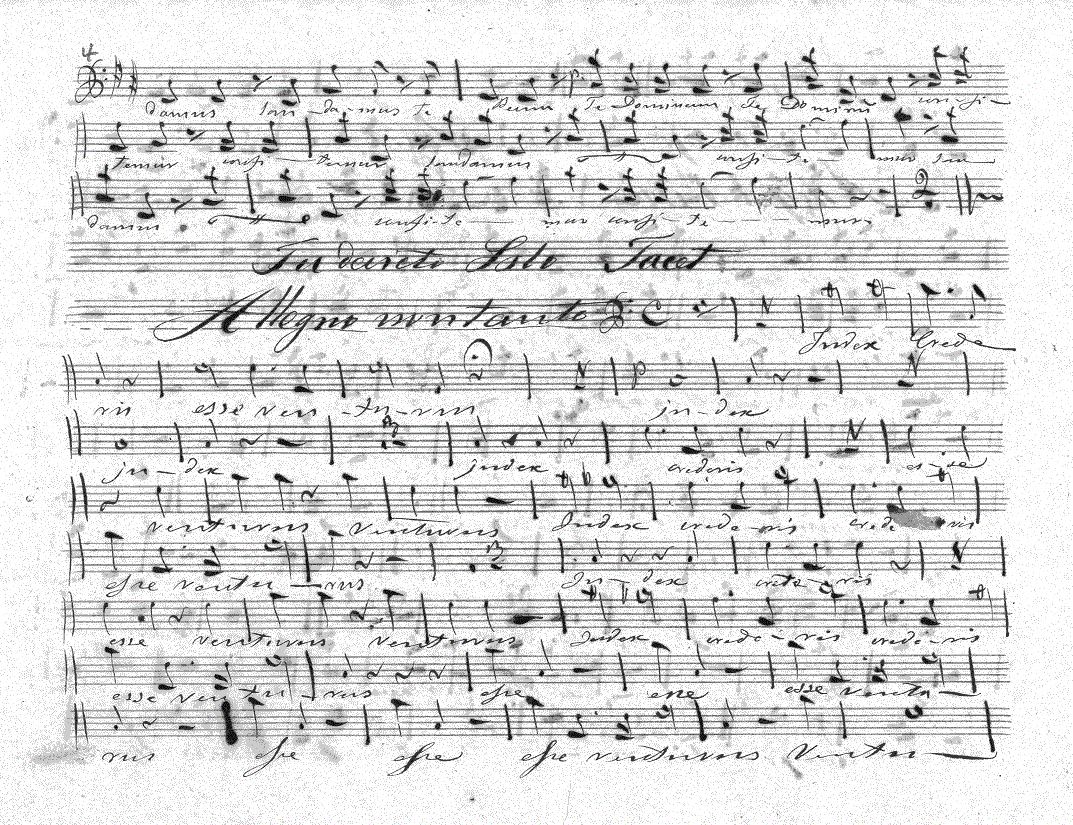 4
damus lau - da - mus te Deum Te Dominum Te Dominũ confi -
temur confi - temur laudamus confi - te - mur lau
damus confi - te - mur confi - te - - - mur
Tu devicto Solo Tacet
Allegro non tanto
Judex Crede
ris esse ven - tu - rus ju - dex
ju - dex judex crederis es - se
venturus Venturus Judex crede - ris crede ris
esse ventu - rus Ju - dex crede - ris
esse venturus venturus Judex crede - ris crede - ris
esse ventu - rus esse esse esse ventu -
rus esse esse esse venturus Ventu -